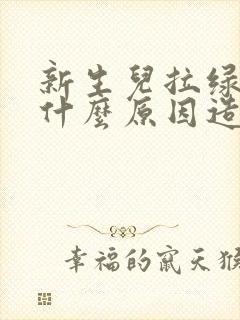 新生兒拉绿
什麼原因造
幸福的窩天猴